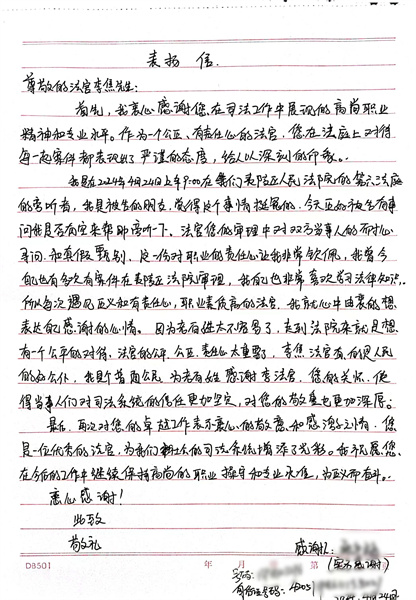 表扬信
尊敬的法官李焦先生:
首先,我衷心感谢您在司法工作中展现的高尚职业
精神和专业水平。作为一个公正、有责任心的法官,您在法庭上对待
每一起案件都表现出了严谨的态度,给人以深刻的印象。
我是在2024年4月24日上午9:00在我们襄陵区人民法院的第六法庭
的旁听者,我是被告的朋友,觉得这个事情挺冤的,今天正好被告有事
问我是否有空来帮那旁听一下。法官您的审理中对双方当事人的耐心
寻问和真假甄别,这一份对职业的责任心让我非常钦佩,我曾今
的也有多次有案件在 法院审理,我自己也非常喜欢学习法律知识,
所以每次遇见正义和有责任心,职业素质高的法官,我就心中由衷的想
表达自己感谢的心情。因为老百姓太不容易了,走到法院来就是想
有一个公平的对待,法官的公平、公正、责任心太重要了,李焦法官有 人民
的好公仆,我是个普通公民,为老百姓感谢李法官,您的关怀,使
得当事人们对司法系统的信任更加坚定,对您的敬意也更加深厚。
最后,再次对您的卓越工作表示衷心的敬意和感激之情,您
是一位优秀的法官,为我们 的司法系统增添了光彩。我 愿您
在今后的工作中继续保持高尚的职业操守和专业水准,为正义而奋斗。
衷心感谢!
此致
敬礼
感谢人:
(实名感谢)
D8501 年 月 第
身份证号码:4205
24日